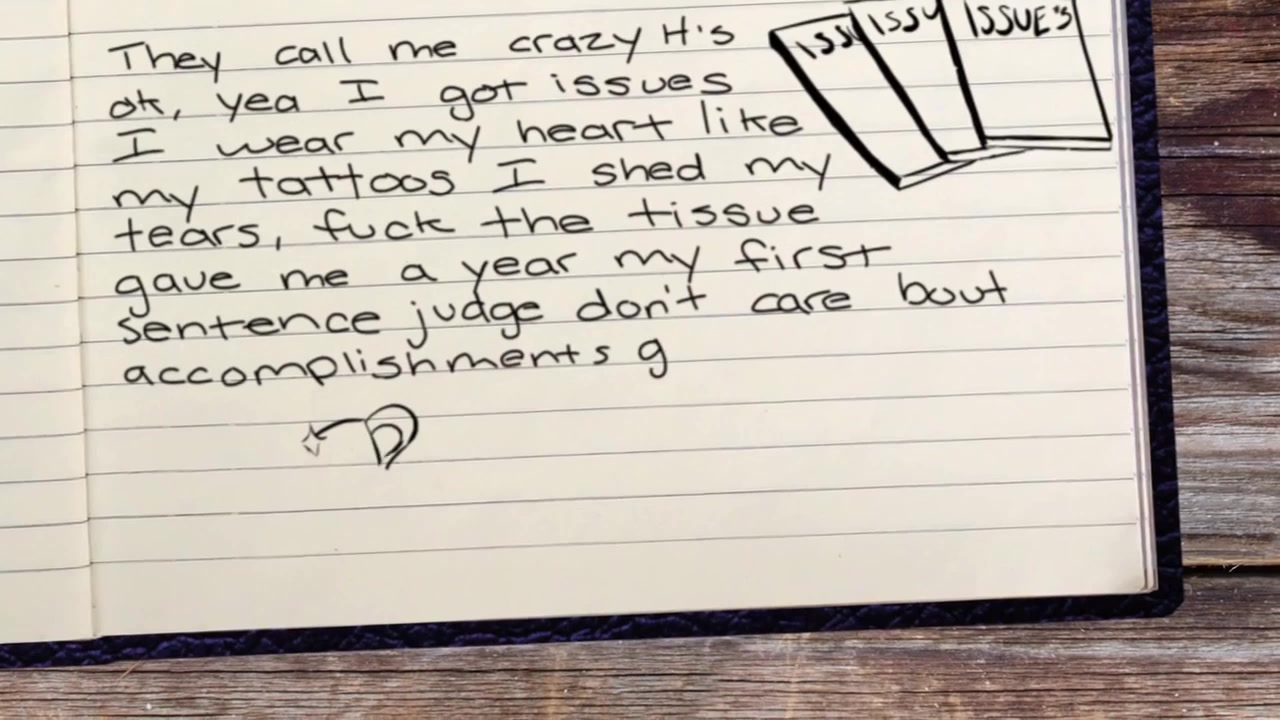 They call me crazy it's
ok, yea I got issues
I wear my heart like
my tattoos I shed my
tears, fuck the tissue
gave me a year my first
sentence judge don't care bout
accomplishments g
ISSU
ISSU
ISSUE'S